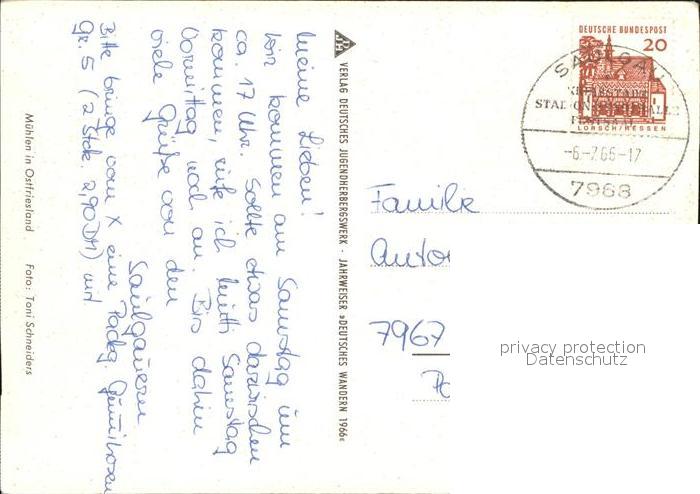 Meine Lieben!
Wir kommen am Samstag um
ca. 17 Uhr. Sollte etwas dazwischen
kommen, rufe ich mittl. Samstag
Vormittag noch an. Bis dahin
viele Grüße von den
Saulgauern
Bitte bringe vom X eine Packg. Gummihosen
Gr. 5 (2 Stck 2,90 DM) mit
Mühlen in Ostfriesland Foto: Toni Schneiders
DJH VERLAG DEUTSCHES JUGENDHERBERGSWERK · JAHRWEISER »DEUTSCHES WANDERN 1966«
DEUTSCHE BUNDESPOST
20
LORSCH/HESSEN
SAULGAU
-6.-7.66-17
7968
Familie
Auto
7967
privacy protection
Datenschutz